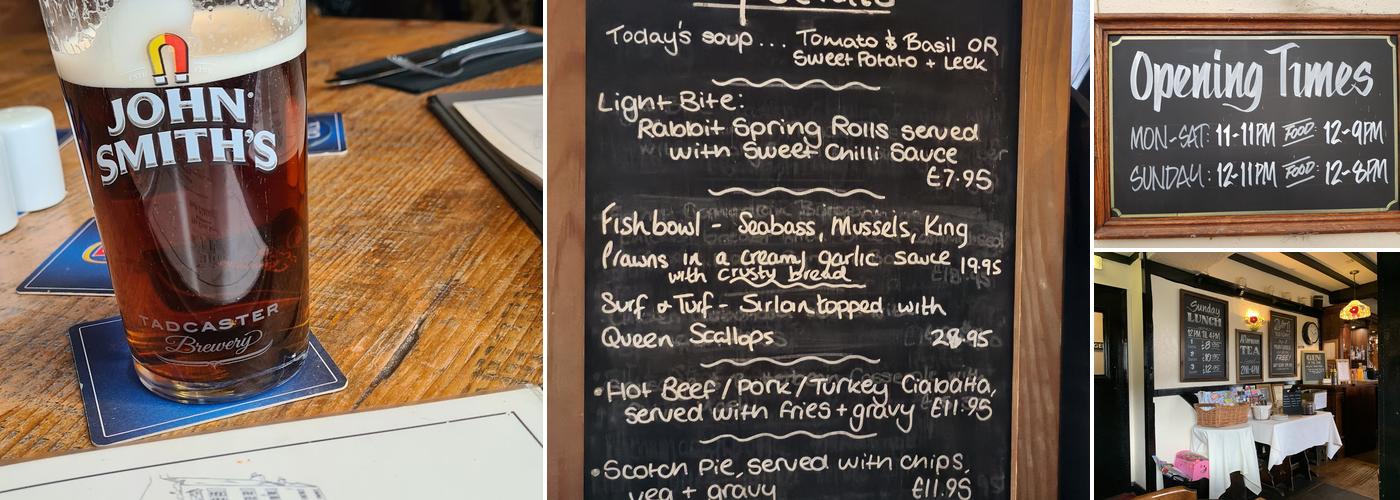 JOHN
SMITH'S
TADCASTER
Brewery
Today's soup... Tomato & Basil OR
Sweet Potato + Leek
Light Bite:
Rabbit Spring Rolls served
with Sweet Chilli Sauce
£7.95
Fishbowl - Seabass, Mussels, King
Prawns in a creamy garlic sauce 19.95
with crusty bread
Surf & Turf - Sirloin topped with
Queen Scallops 28.95
• Hot Beef/Pork/Turkey Ciabatta,
served with fries + gravy £11.95
• Scotch Pie, served with chips,
veg + gravy £11.95
Opening Times
MON-SAT: 11-11PM FOOD: 12-9PM
SUNDAY: 12-11PM FOOD: 12-8PM
Sunday
LUNCH
12PM TIL 4PM
Afternoon
TEA
2PM-4PM
GIN